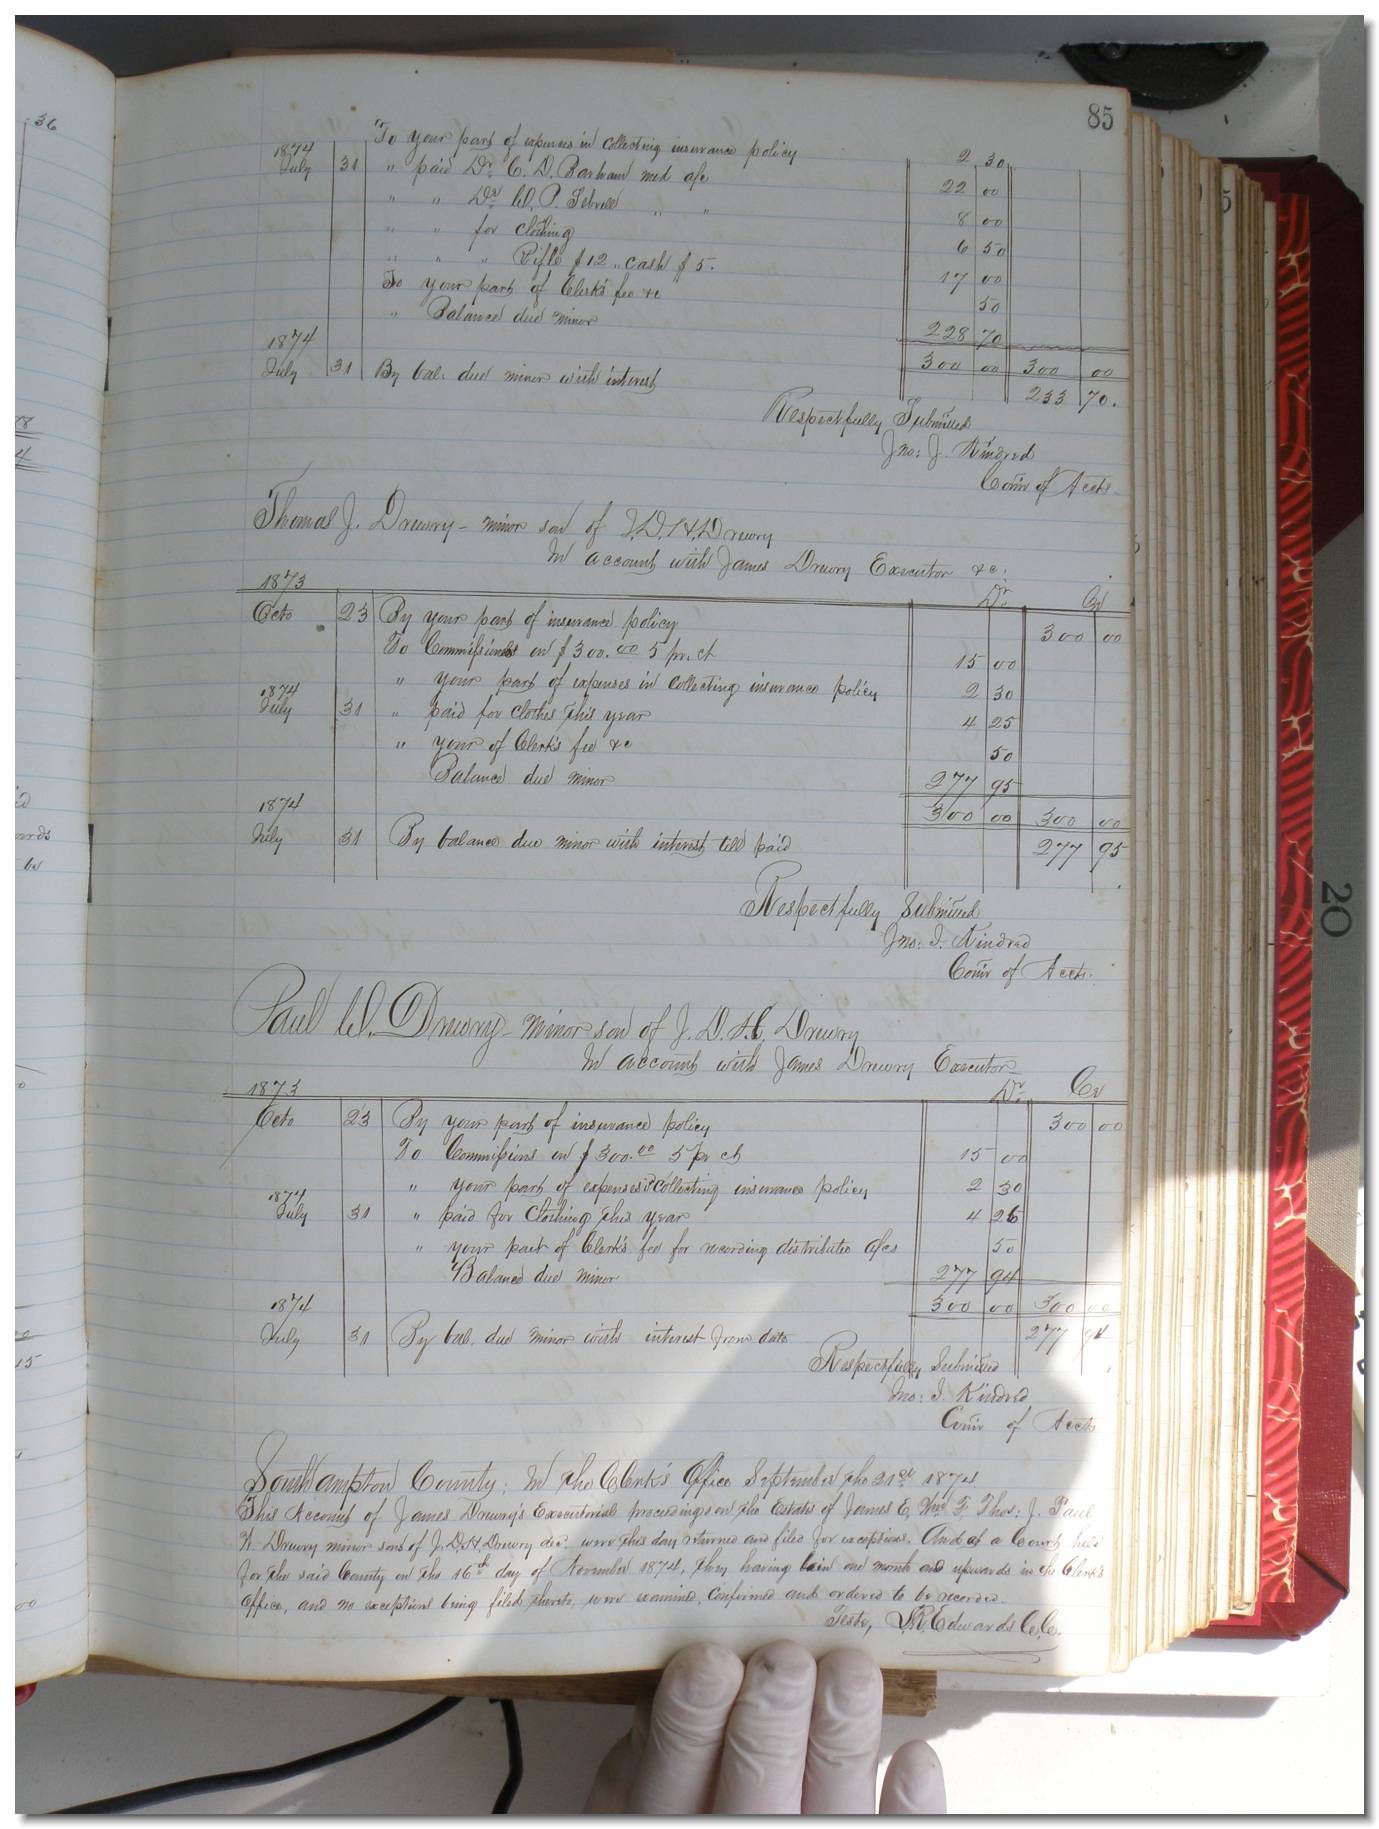 85
"To your part of expenses in collecting insurance policy 2 30
1874 July 31 " paid Dr. C. D. Barham med a/c 22 00
" " Dr. W. P. " " 8 00
" " for clothing 6 50
" " " Rifle $12 " cash $5. 17 00
To your part of Clerk's fee &c 50
" Balance due minor 228 70
300 00 300 00
1874 July 31 By bal. due minor with interest 233 70.
Respectfully Submitted
Jno: J. Kindred
Comr of Accts.
Thomas J. Drewry - minor son of J. D. H. Drewry
In account with James Drewry Executor &c.
1873 Dr. Cr
Octo 23 By your part of insurance policy 300 00
To Commissions on $300.00 5 pr. ct 15 00
" your part of expenses in collecting insurance policy 2 30
1874 July 31 " paid for clothes this year 4 25
" your of Clerk's fee &c 50
Balance due minor 277 95
300 00 300 00
1874 July 31 By balance due minor with interest till paid 277 95
Respectfully Submitted
Jno: J. Kindred
Comr of Accts.
Paul W. Drewry - minor son of J. D. H. Drewry
In account with James Drewry Executor
1873 Dr. Cr
Octo 23 By your part of insurance policy 300 00
To Commissions on $300.00 5 pr ct 15 00
" your part of expenses collecting insurance policy 2 30
1874 July 31 " paid for clothing this year 4 26
" your part of Clerk's fee for recording distributee a/cs 50
Balance due minor 277 94
300 00 300 00
1874 July 31 By bal. due minor with interest from date 277 94
Respectfully Submitted
Jno: J. Kindred
Comr of Accts
Southampton County: In the Clerk's Office September the 21st 1874
This Account of James Drewry's Executorial proceedings on the Estate of James E, Wm. F, Thos: J. Paul
W. Drewry minor sons of J. D. H. Drewry dec. were this day returned and filed for exceptions. And at a Court held
for the said County on the 16th day of November 1874, they having lain one month and upwards in the Clerk's
Office, and no exceptions being filed thereto, were examined, confirmed and ordered to be recorded.
Teste, L. R. Edwards C.C.
20